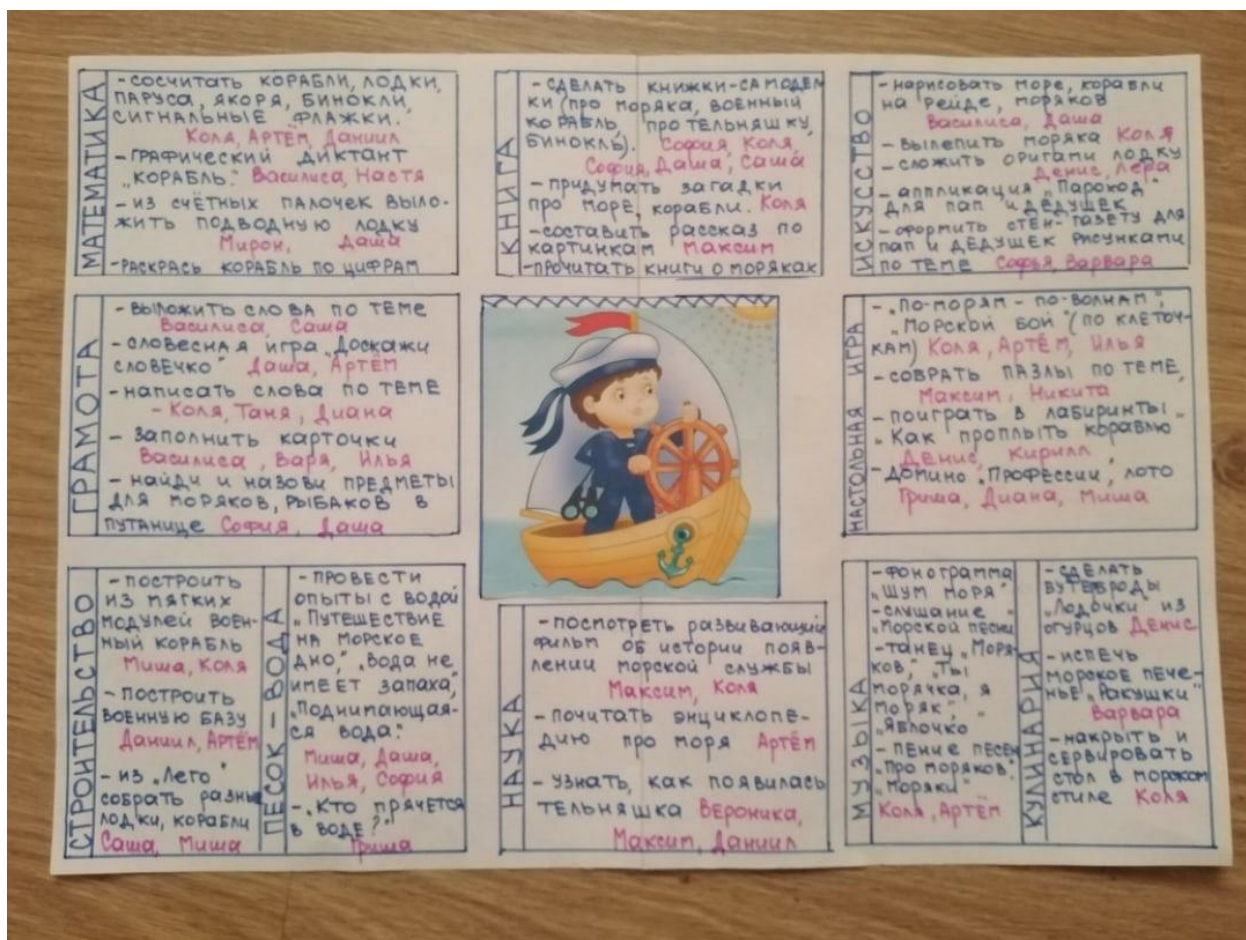 МАТЕМАТИКА
- СОСЧИТАТЬ КОРАБЛИ, ЛОДКИ,
ПАРУСА, ЯКОРЯ, БИНОКЛИ,
СИГНАЛЬНЫЕ ФЛАЖКИ.
Коля, Артём, Даниил
- ГРАФИЧЕСКИЙ ДИКТАНТ
„КОРАБЛЬ." Василиса, Настя
- ИЗ СЧЁТНЫХ ПАЛОЧЕК ВЫЛО-
ЖИТЬ ПОДВОДНУЮ ЛОДКУ
Мирон, Даша
- РАСКРАСЬ КОРАБЛЬ ПО ЦИФРАМ
КНИГА
- СДЕЛАТЬ КНИЖКИ-САМОДЕЛ
КИ (ПРО МОРЯКА, ВОЕННЫЙ
КОРАБЛЬ, ПРО ТЕЛЬНЯШКУ,
БИНОКЛЬ). София, Коля,
София, Даша, Саша
- ПРИДУМАТЬ ЗАГАДКИ
ПРО МОРЕ, КОРАБЛИ. Коля
- СОСТАВИТЬ РАССКАЗ ПО
КАРТИНКАМ Максим
- ПРОЧИТАТЬ КНИГИ О МОРЯКАХ
ИСКУССТВО
- НАРИСОВАТЬ МОРЕ, КОРАБЛИ
НА РЕЙДЕ, МОРЯКОВ
Василиса, Даша
- ВЫЛЕПИТЬ МОРЯКА Коля
- СЛОЖИТЬ ОРИГАМИ ЛОДКУ
Денис, Лера
- АППЛИКАЦИЯ „ПАРОХОД"
ДЛЯ ПАП И ДЕДУШЕК
- ОФОРМИТЬ СТЕН-ГАЗЕТУ ДЛЯ
ПАП И ДЕДУШЕК РИСУНКАМИ
ПО ТЕМЕ Софья, Варвара
ГРАМОТА
- ВЫЛОЖИТЬ СЛОВА ПО ТЕМЕ
Василиса, Саша
- СЛОВЕСНАЯ ИГРА „ДОСКАЖИ
СЛОВЕЧКО" Даша, Артём
- НАПИСАТЬ СЛОВА ПО ТЕМЕ
- Коля, Таня, Диана
- ЗАПОЛНИТЬ КАРТОЧКИ
Василиса, Варя, Илья
- НАЙДИ И НАЗОВИ ПРЕДМЕТЫ
ДЛЯ МОРЯКОВ, РЫБАКОВ В
ПУТАНИЦЕ София, Даша
НАСТОЛЬНАЯ ИГРА
- „ПО-МОРЯМ - ПО-ВОЛНАМ",
„МОРСКОЙ БОЙ" (ПО КЛЕТОЧ-
КАМ) Коля, Артём, Илья
- СОБРАТЬ ПАЗЛЫ ПО ТЕМЕ,
Максим, Никита
- ПОИГРАТЬ В ЛАБИРИНТЫ
„КАК ПРОПЛЫТЬ КОРАБЛЮ"
Денис, Кирилл
- ДОМИНО „ПРОФЕССИИ", ЛОТО
Гриша, Диана, Миша
СТРОИТЕЛЬСТВО
- ПОСТРОИТЬ
ИЗ МЯГКИХ
МОДУЛЕЙ ВОЕН-
НЫЙ КОРАБЛЬ
Миша, Коля
- ПОСТРОИТЬ
ВОЕННУЮ БАЗУ
Даниил, Артём
- ИЗ „ЛЕГО"
СОБРАТЬ РАЗНЫ
ЛОДКИ, КОРАБЛИ
Саша, Миша
ПЕСОК-ВОДА
- ПРОВЕСТИ
ОПЫТЫ С ВОДОЙ
„ПУТЕШЕСТВИЕ
НА МОРСКОЕ
ДНО," „ВОДА НЕ
ИМЕЕТ ЗАПАХА",
„ПОДНИМАЮЩАЯ-
СЯ ВОДА".
Миша, Даша,
Илья, София
- „КТО ПРЯЧЕТСЯ
В ВОДЕ?"
Гриша
НАУКА
- ПОСМОТРЕТЬ РАЗВИВАЮЩИЙ
ФИЛЬМ ОБ ИСТОРИИ ПОЯВ-
ЛЕНИИ МОРСКОЙ СЛУЖБЫ
Максим, Коля
- ПОЧИТАТЬ ЭНЦИКЛОПЕ-
ДИЮ ПРО МОРЯ Артём
- УЗНАТЬ, КАК ПОЯВИЛАСЬ
ТЕЛЬНЯШКА Вероника,
Максим, Даниил
МУЗЫКА
- ФОНОГРАММА
„ШУМ МОРЯ"
- СЛУШАНИЕ
„МОРСКОЙ ПЕСНИ
- ТАНЕЦ „МОРЯ-
КОВ", „ТЫ
МОРЯЧКА, Я
МОРЯК",
„ЯБЛОЧКО
- ПЕНИЕ ПЕСЕН
„ПРО МОРЯКОВ".
„МОРЯКИ"
Коля, Артём
КУЛИНАРИЯ
- СДЕЛАТЬ
БУТЕБРОДЫ
„ЛОДОЧКИ" ИЗ
ОГУРЦОВ Денис
- ИСПЕЧЬ
МОРСКОЕ ПЕЧЕ-
НЬЕ „РАКУШКИ"
Варвара
- НАКРЫТЬ И
СЕРВИРОВАТЬ
СТОЛ В МОРСКОМ
СТИЛЕ Коля